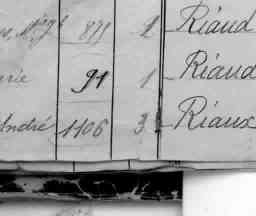 871 1 Riaud
91 1 Riaud
André 1106 3 Riaux